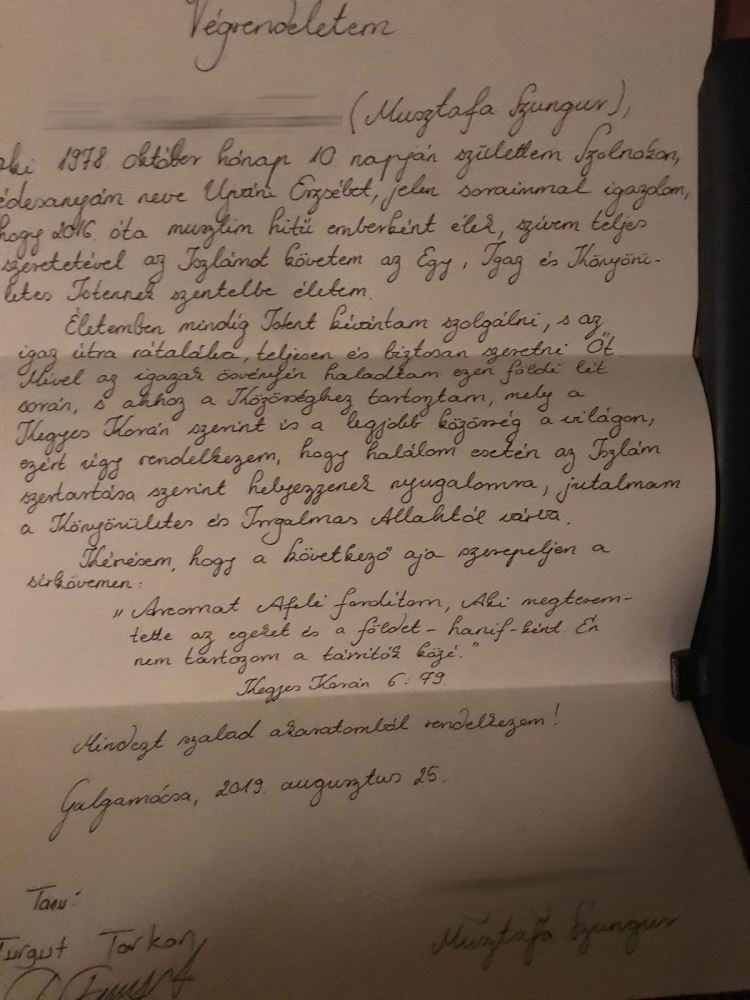 Végrendeletem
(Musztafa Szungur),
aki 1978. október hónap 10 napján születtem Szolnokon,
édesanyám neve Erzsébet, jelen soraimmal igazolom,
hogy 2016 óta muszlim hitű emberként élek, szívem teljes
szeretetével az Iszlámot követem az Egy, Igaz és Könyörü-
letes Istennek szentelve életem.
Életemben mindig Istent kívántam szolgálni, s az
igaz útra rátalálva, teljesen és biztosan szeretni Őt.
Mivel az igazak ösvényén haladtam ezen földi lét
során, s ahhoz a Közösséghez tartoztam, mely a
Kegyes Korán szerint is a legjobb közösség a világon,
ezért úgy rendelkezem, hogy halálom esetén az Iszlám
szertartása szerint helyezzenek nyugalomra, jutalmam
a Könyörületes és Irgalmas Allahtól várva.
Kérésem, hogy a következő aja szerepeljen a
sírkövemen:
„Arcomat Afelé fordítom, Aki megterem-
tette az egeket és a földet - hanif-ként. Én
nem tartozom a társítók közé."
Kegyes Korán 6:79.
Mindezt szabad akaratomból rendelkezem!
Galgamácsa, 2019. augusztus 25.
Tanú:
Turgut Tarkan
Musztafa Szungur